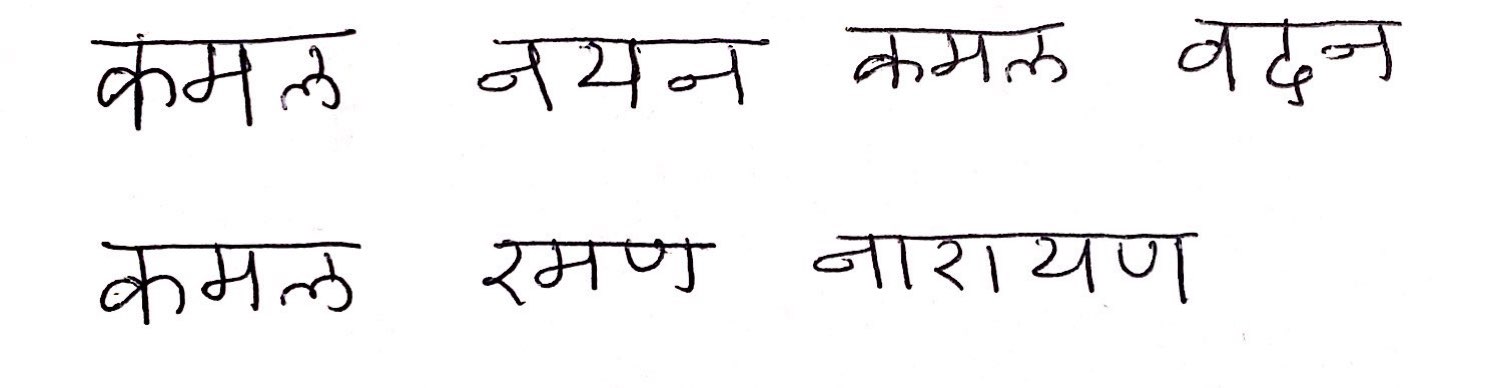 कमल नयन कमल वदन
कमल रमण नारायण